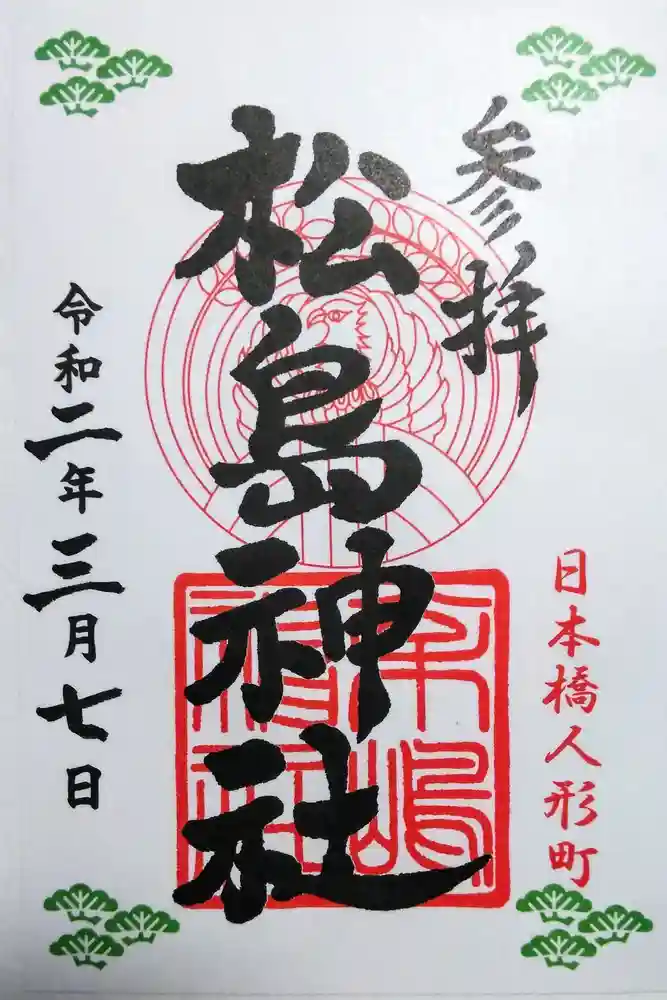 参拝
日本橋人形町
松島神社
松嶋神社
令和二年三月七日